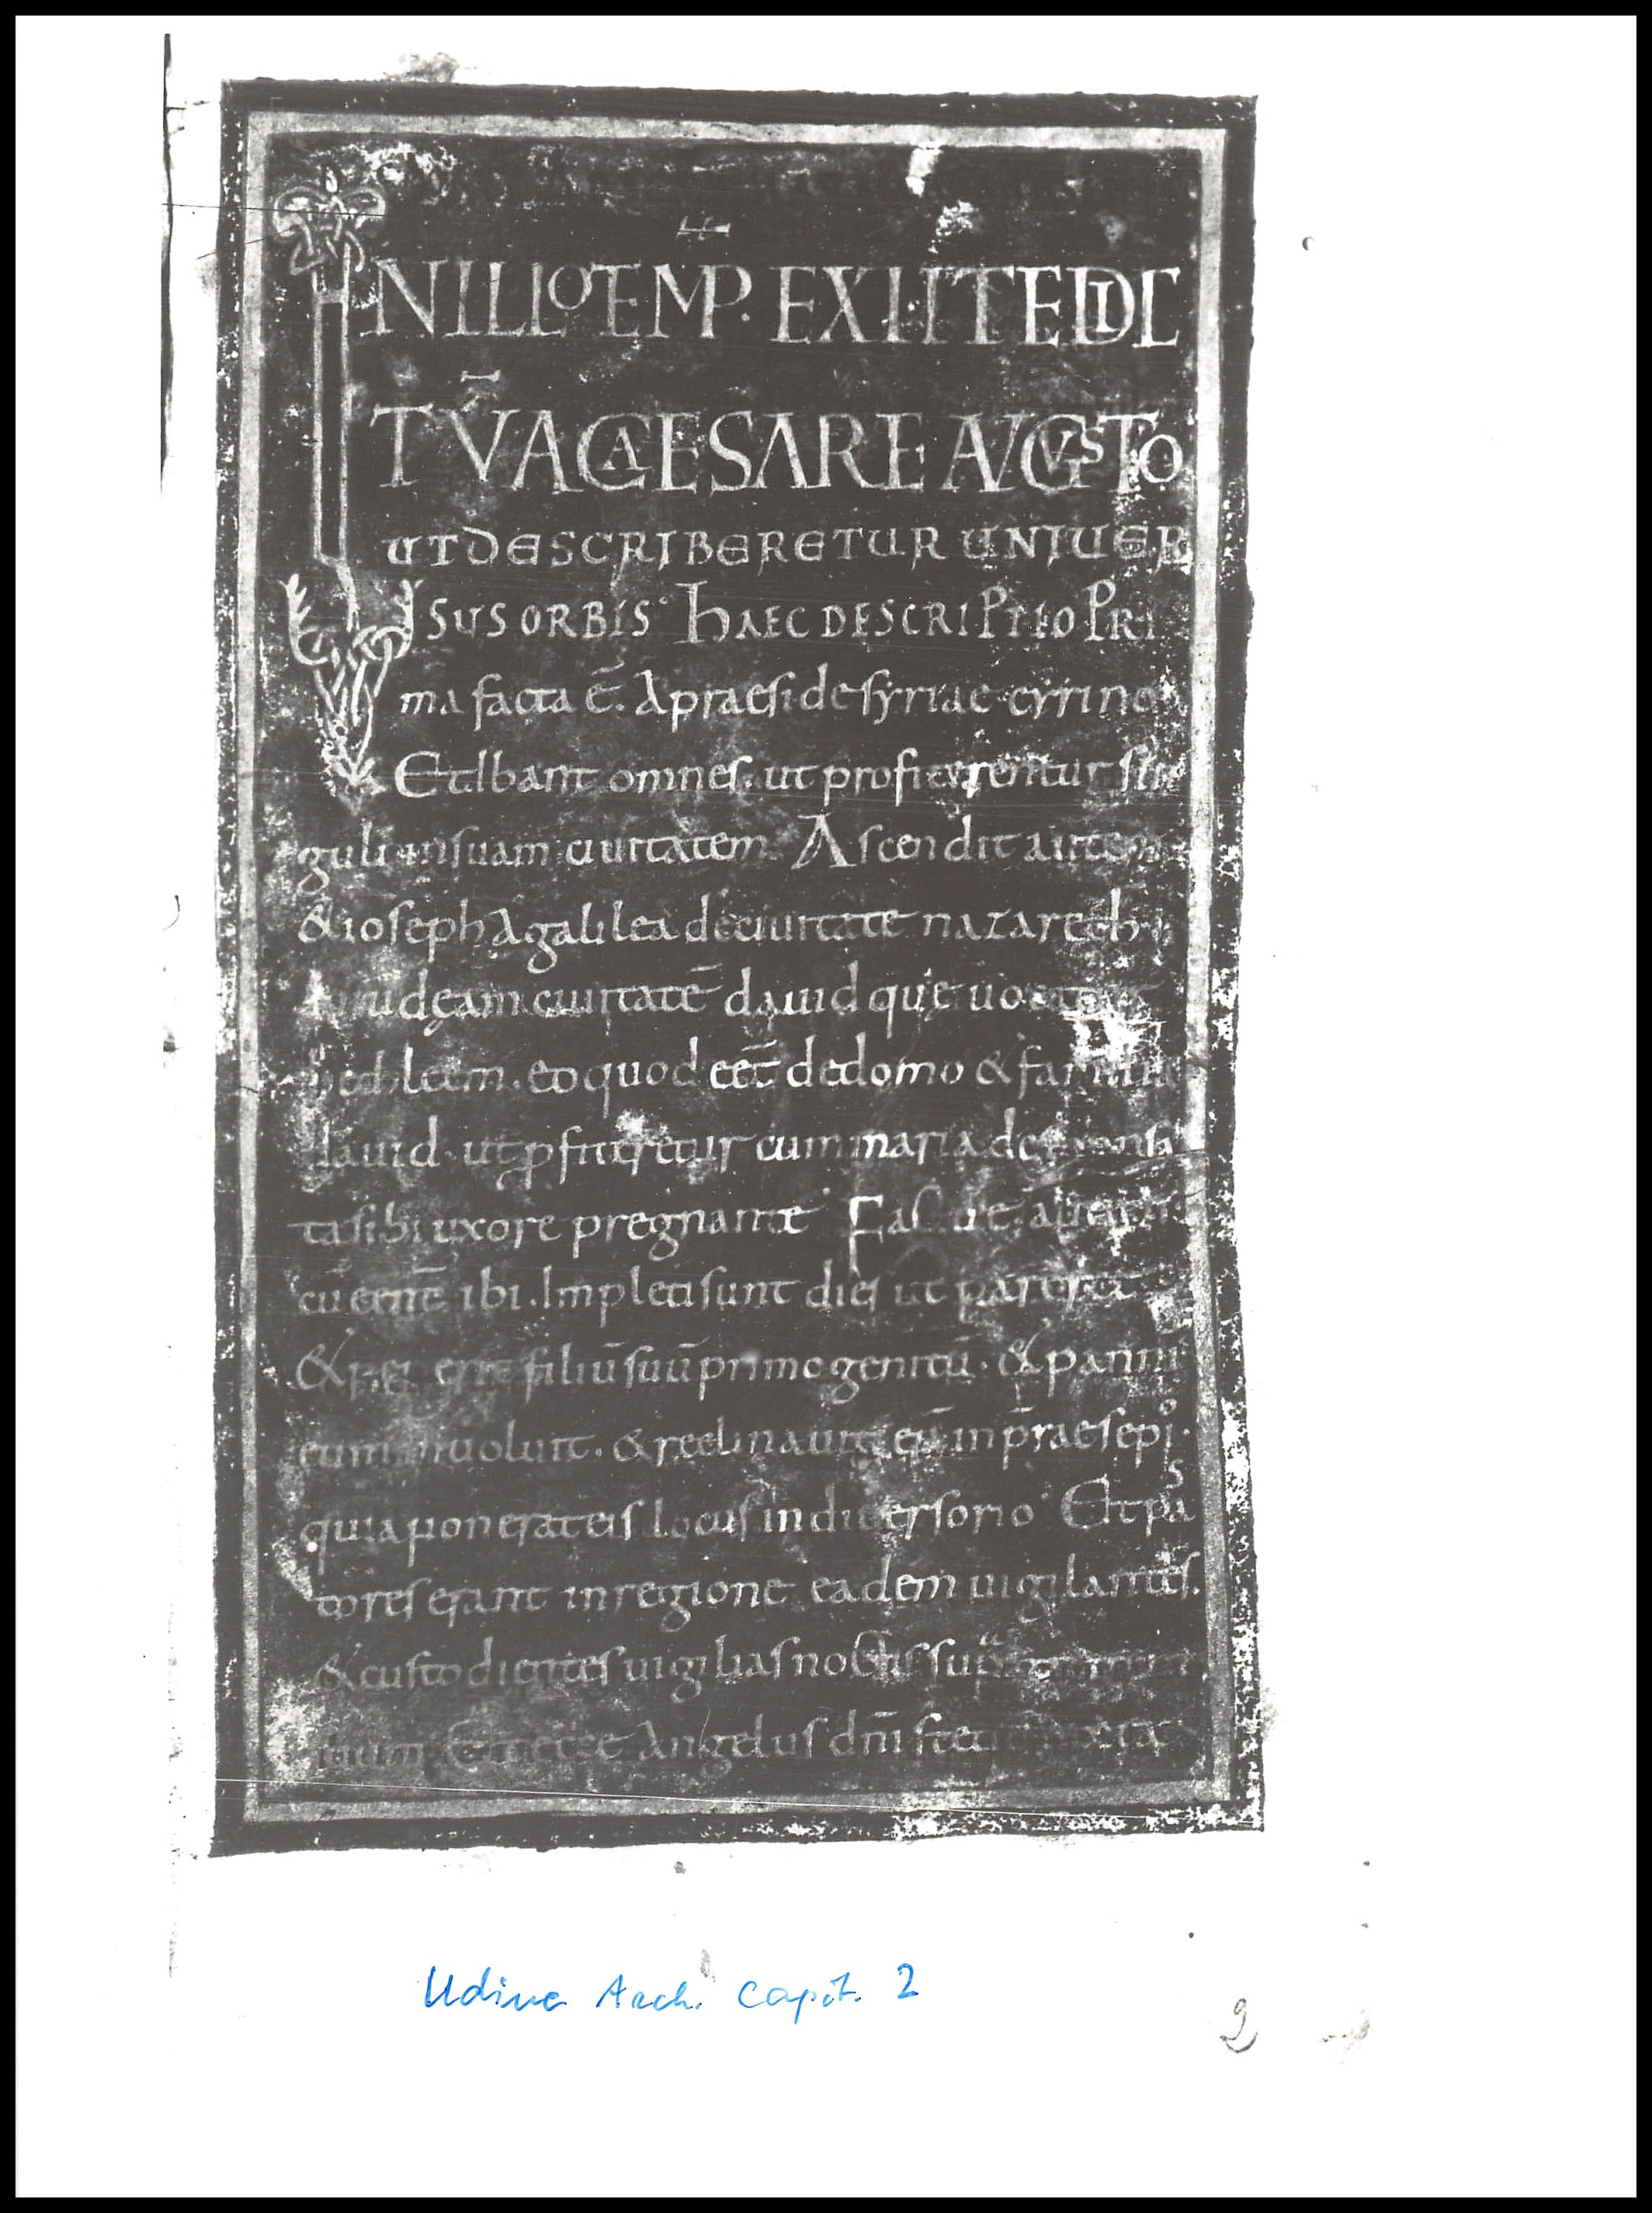 INILLO TEMP. EXIIT EDIC
TŪ A CAESARE AUGUSTO
UT DESCRIBERETUR UNIUER
SUS ORBIS. HAEC DESCRIPTIO PRI
ma facta ē. A praeside syriae cyrino
Et Ibant omnes. ut profiterentur sin
guli insuam ciuitatem. Ascendit autem
& ioseph A galilea de ciuitate nazareth
iudęam ciuitatē dauid quę uocatur
bethleem. eo quod eēt de domo & familia
dauid. ut pfiteretur cum maria desponsa
ta sibi uxore pregnante Factū ē. autem
cū eēnt ibi. Impleti sunt dies ut pareret
& peperit filiū suū primogenitū. & panni
eum inuoluit. & reclinauit eū in praesepio.
quia non erat eis locus in diuersorio Et pas
tores erant in regione eadem uigilantes.
& custodientes uigilias noctis supra
Et ecce Angelus dn̄i stetit iuxta
Udine Arch. Capit. 2
2